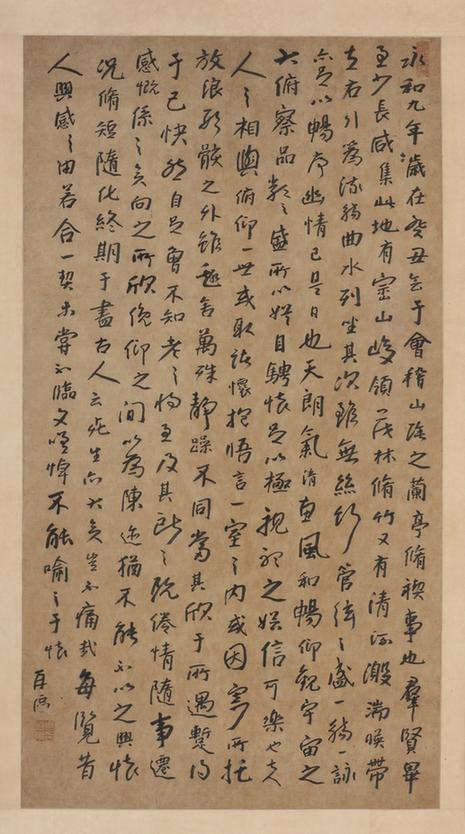 永和九年歲在癸丑會于會稽山陰之蘭亭脩禊事也羣賢畢
至少長咸集此地有崇山峻領茂林脩竹又有清流激湍暎帶
左右引為流觴曲水列坐其次雖無絲竹管弦之盛一觴一詠
亦足以暢序幽情已是日也天朗氣清惠風和暢仰觀宇宙之
大俯察品類之盛所以遊目騁懷足以極視聽之娛信可樂也夫
人之相與俯仰一世或取諸懷抱悟言一室之內或因寄所托
放浪形骸之外雖趣舍萬殊靜躁不同當其欣于所遇蹔得
于己快然自足曾不知老之將至及其所之既倦情隨事遷
感慨係之矣向之所欣俛仰之間以為陳迹猶不能不以之興懷
況脩短隨化終期于盡古人云死生亦大矣豈不痛哉每覽昔
人興感之由若合一契未嘗不臨文嗟悼不能喻之于懷